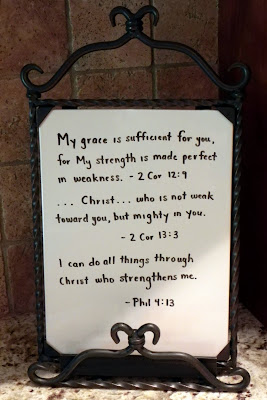 My grace is sufficient for you,
for My strength is made perfect
in weakness. - 2 Cor 12:9
... Christ... who is not weak
toward you, but mighty in you.
- 2 Cor 13:3
I can do all things through
Christ who strengthens me.
- Phil 4:13